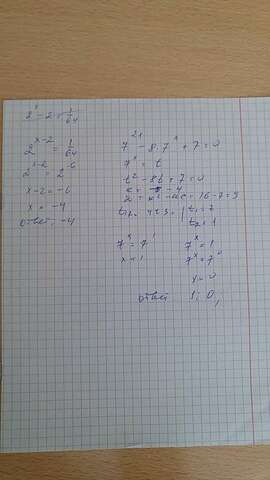 2ˣ⁻² = 1/64
2ˣ⁻² = 2⁻⁶
x-2 = -6
x = -4
ответ: -4
7²ˣ - 8·7ˣ + 7 = 0
7ˣ = t
t² - 8t + 7 = 0
k = -4
D = k² - ac = 16 - 7 = 9
t₁,₂ = 4±3 = | t₁ = 7
t₂ = 1
7ˣ = 7¹
x = 1
7ˣ = 1
7ˣ = 7⁰
x = 0
ответ 1; 0,